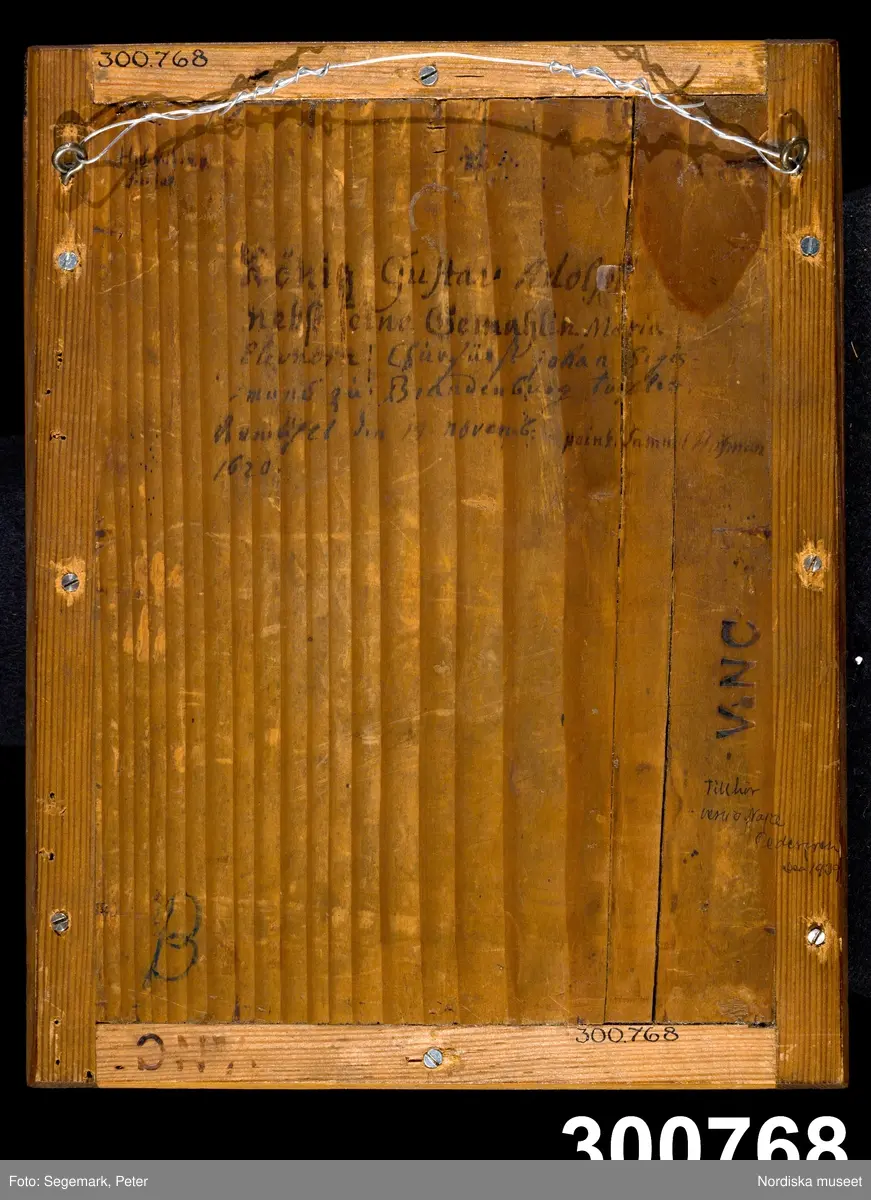 300.768
König Gustav Adolff
nebst seine Gemahlin Maria
Elevnora! Chürfürst johan Sigis
mund zu: Brandenburg
den 19 novemb: peint. Samuel Hofman
1620.
V.N.C
Tillhör
Pedersen
Dec 1939
B
300.768
300768
Foto: Segemark, Peter
Nordiska museet